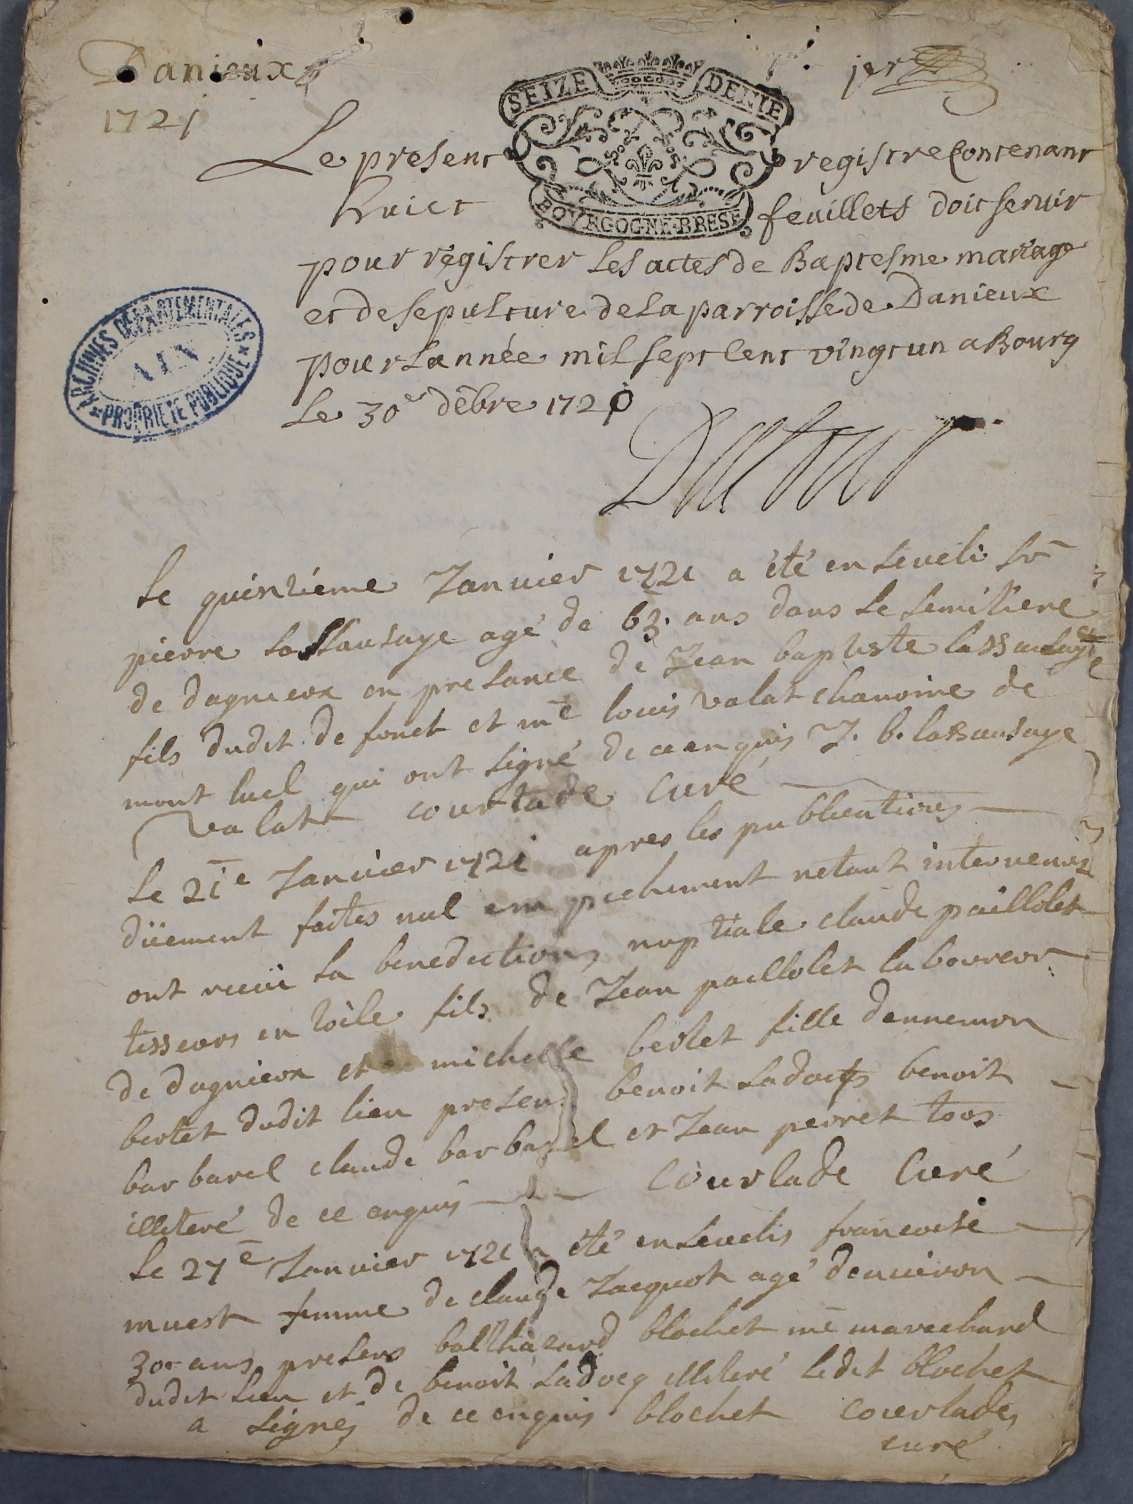 Danieux
1721
jer
SEIZE DENIE
BOURGOGNE·BRESE
Le present registre Contenant
huict feuillets doit servir
pour registrer les actes de Baptesme mariage
et de sepulture de la parroisse de Danieux
pour l'année mil sept cent vingt un a Bourg
Le 30e debre 1720
ARCHIVES DEPARTEMENTALES
AIN
PROPRIETE PUBLIQUE
le quinzieme Janvier 1721 a été enseveli Sr
pierre lassausaye agé de 63 ans dans le semitiere
de dagnieux en presance de Jean baptiste lassausaye
fils dudit defonct et me louis valat chanoine de
mont luel qui ont signé de ce enquis J. b. lassausaye
valat courtade curé
le 21e Janvier 1721 apres les publications
düement faites nul empechement netant intervenus
ont receü la benediction nuptiale claude paillolet
tisseurs en toile fils de Jean paillolet laboureur
de dagnieux et michelle berlet fille dennemon
berlet dudit lieu presens benoit sadoct benoit
barbarel claude barbarel et Jean perret tous
illiteré de ce enquis courtade Curé
le 27e Janvier 1721 a été ensevelis francoise
muest femme de claude Jacquet agé denviron
30 ans presens balthazard blochet me marechard
dudit lieu et de benoit sadocq illiteré ledit blochet
a signé de ce enquis blochet courtade
curé